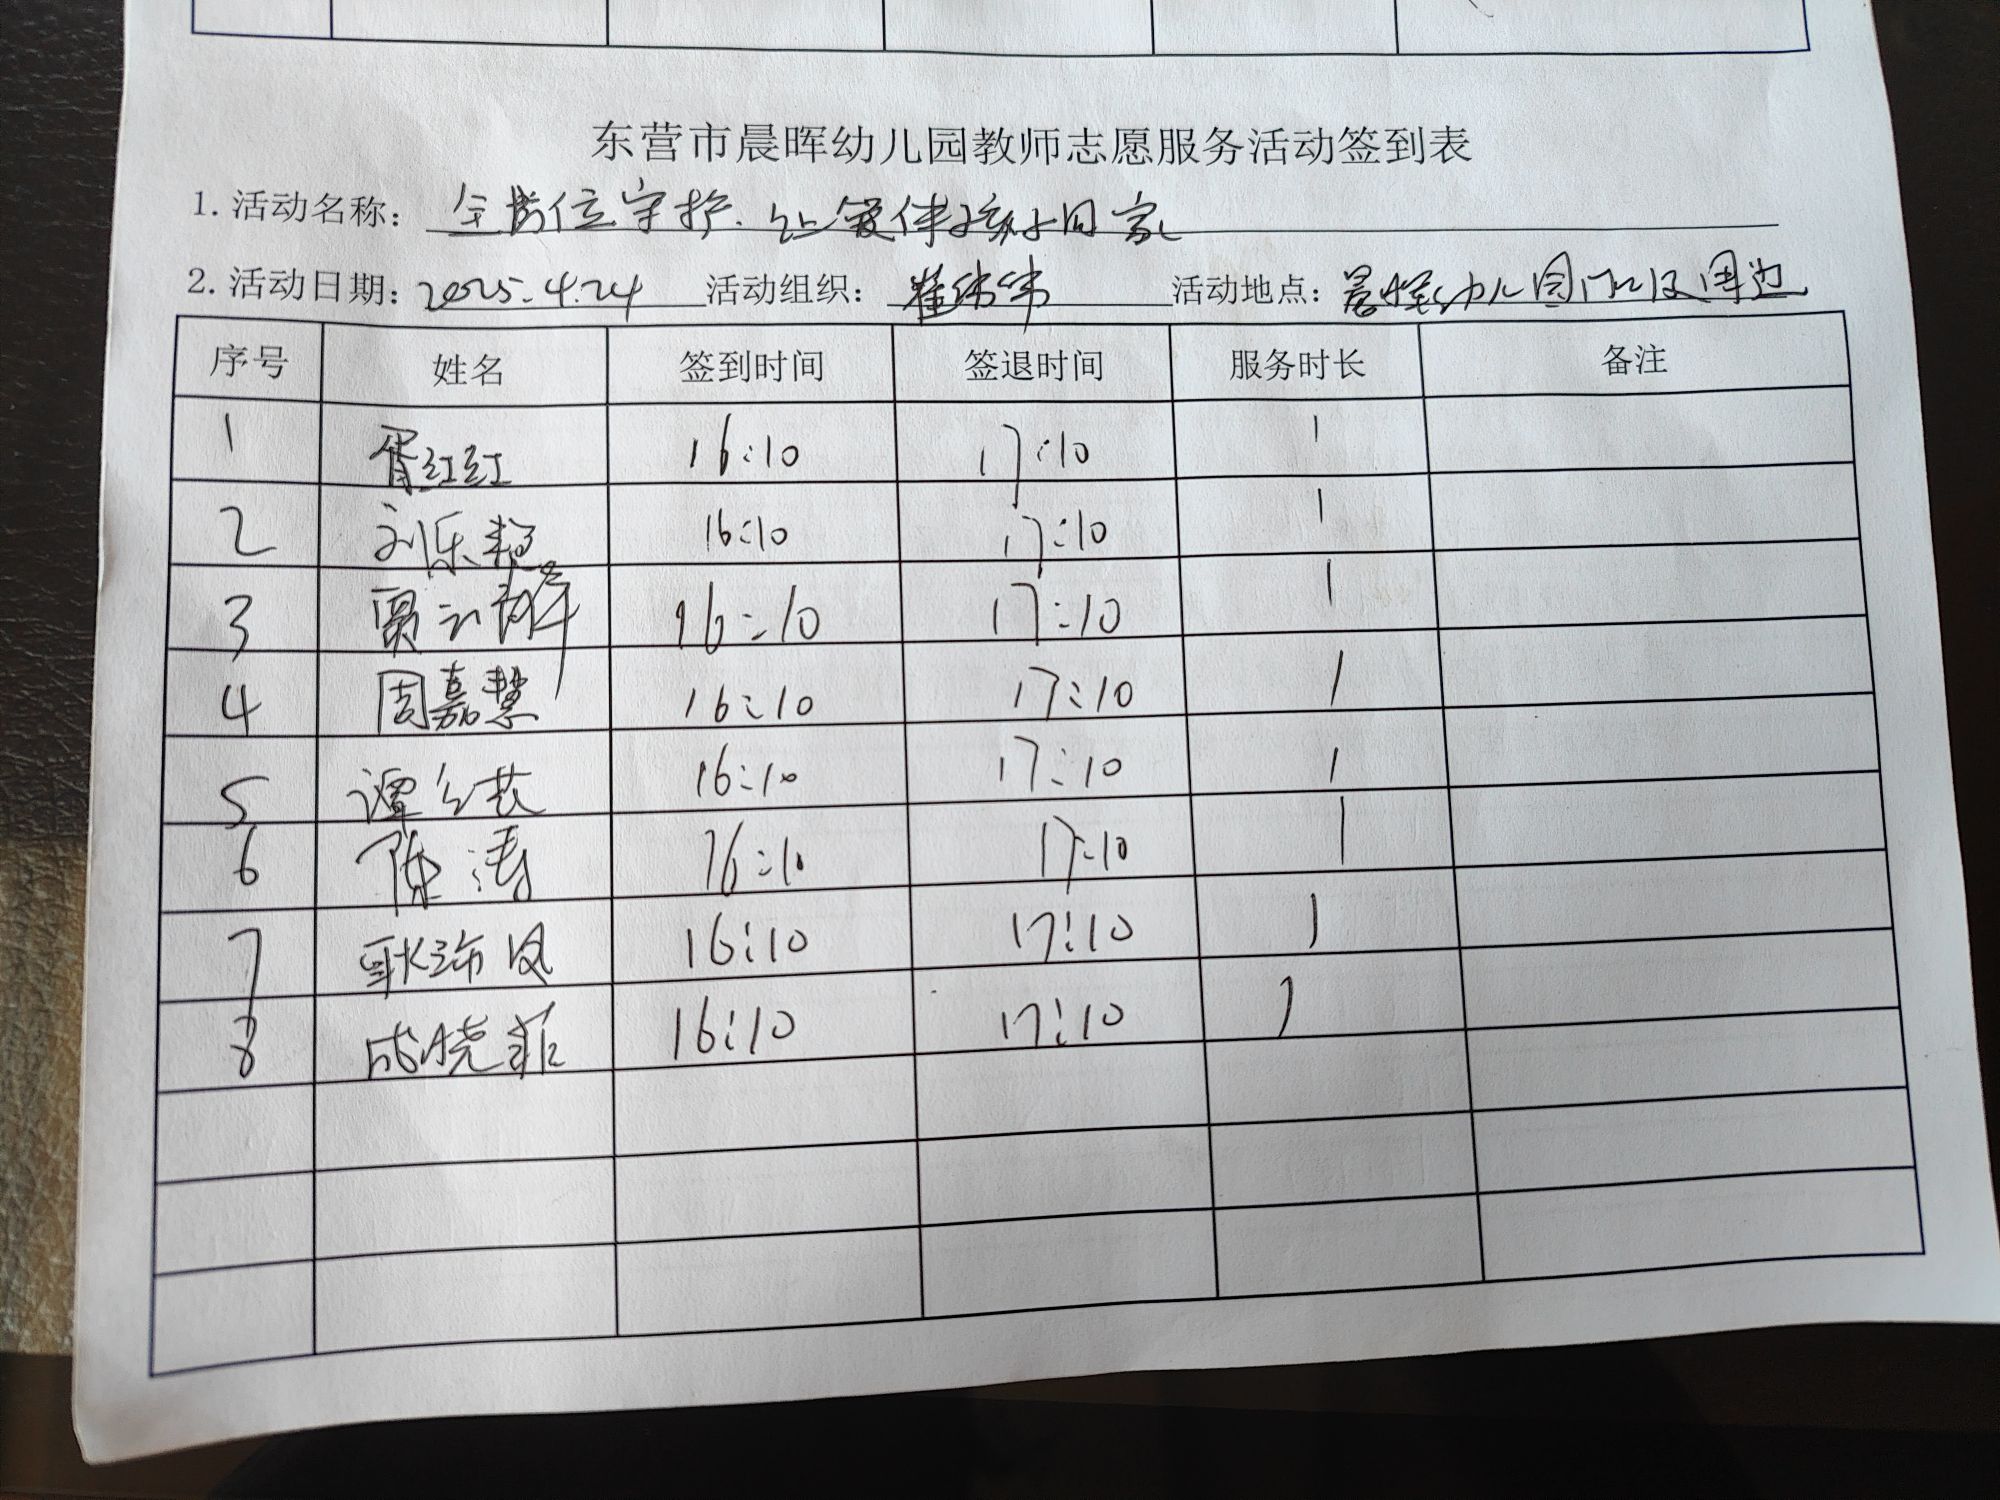 东营市晨晖幼儿园教师志愿服务活动签到表
1. 活动名称：全岗位守护.让爱伴孩子回家
2. 活动日期：2025.4.24 活动组织：崔纬纬 活动地点：晨晖幼儿园门口及周边
序号 姓名 签到时间 签退时间 服务时长 备注
1 胥红红 16:10 17:10 1
2 刘乐 16:10 17:10 1
3 贾 16:10 17:10 1
4 周嘉慧 16:10 17:10 1
5 谭 16:10 17:10 1
6 陈涛 16:10 17:10 1
7 耿 凤 16:10 17:10 1
8 成晓菲 16:10 17:10 1